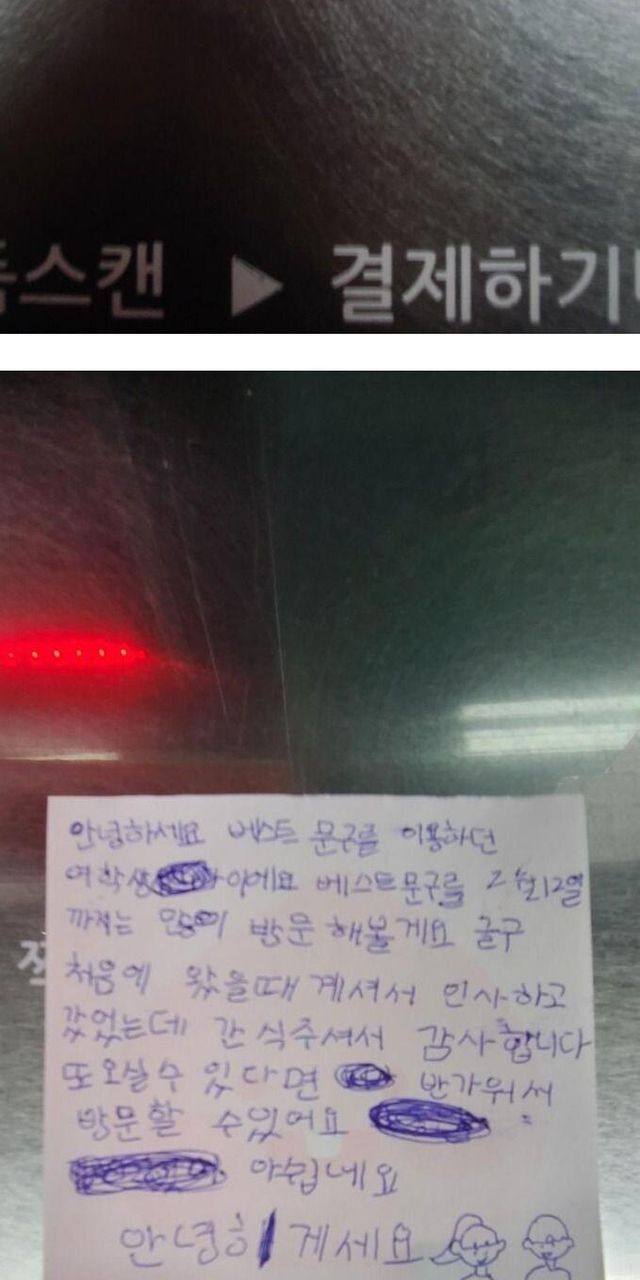 스캔 ▶ 결제하기
안녕하세요 베스트 문구를 이용하던
여학생 이에요 베스트문구를 2월12일
까지는 많이 방문 해볼게요 글구
처음에 왔을때 계셔서 인사하고
갔었는데 간식주셔서 감사합니다
또 오실수 있다면 반가워서
방문할 수있어요
아쉽네요
안녕히 계세요